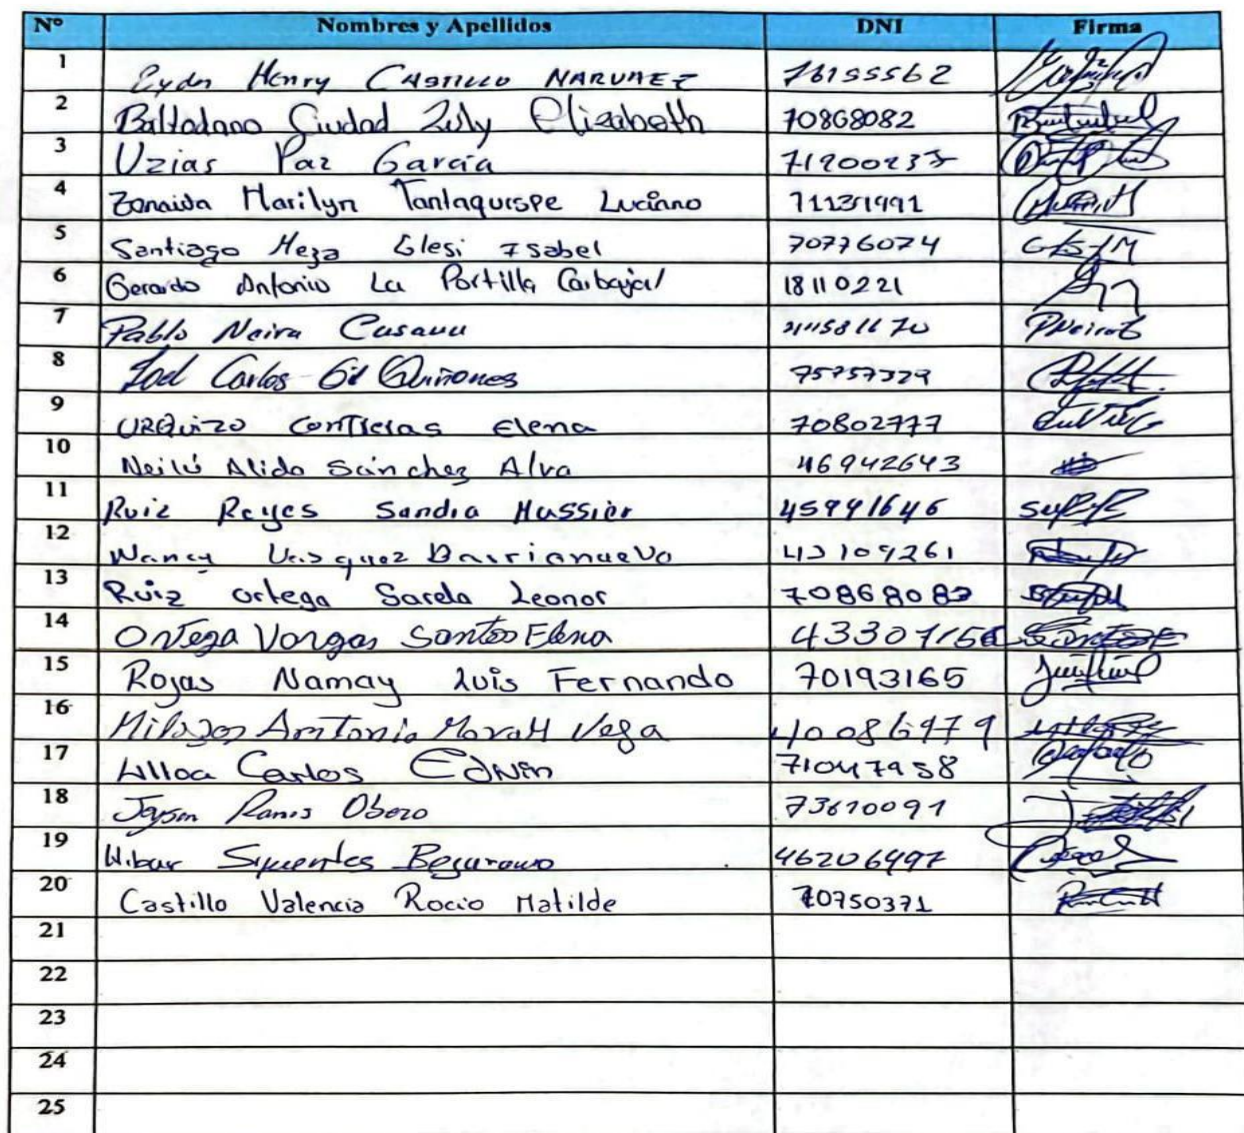 Nº Nombres y Apellidos DNI Firma
1 Eyder Henry CASTILLO NARVAEZ 76155562
2 Baltodano Ciudad Zuly Elizabeth 70868082
3 Uzias Paz García 71200235
4 Zenaida Marilyn Tantaquispe Luciano 71131991
5 Santiago Meza Glesi Isabel 70776074
6 Gerardo Antonio La Portilla Carbajal 18110221
7 Pablo Neira Casana
8 Joel Carlos Gil Quiñones 75757329
9 URQuizo Contreras Elena 70802777
10 Neilú Alida Sánchez Alva 46942643
11 Ruiz Reyes Sandra Massier 45991646
12 Nancy Vasquez Barrianuevo 43109261
13 Ruiz ortega Sarela Leonor 70868083
14 Ortega Vargas Santos Elena
15 Rojas Namay Luis Fernando 70193165
16 Antonia Vega 40086979
17 Ulloa Carlos Edwin 71047958
18 Jeyson Ramos Obezo 73610091
19 46206497
20 Castillo Valencia Rocio Matilde 70750371
21
22
23
24
25